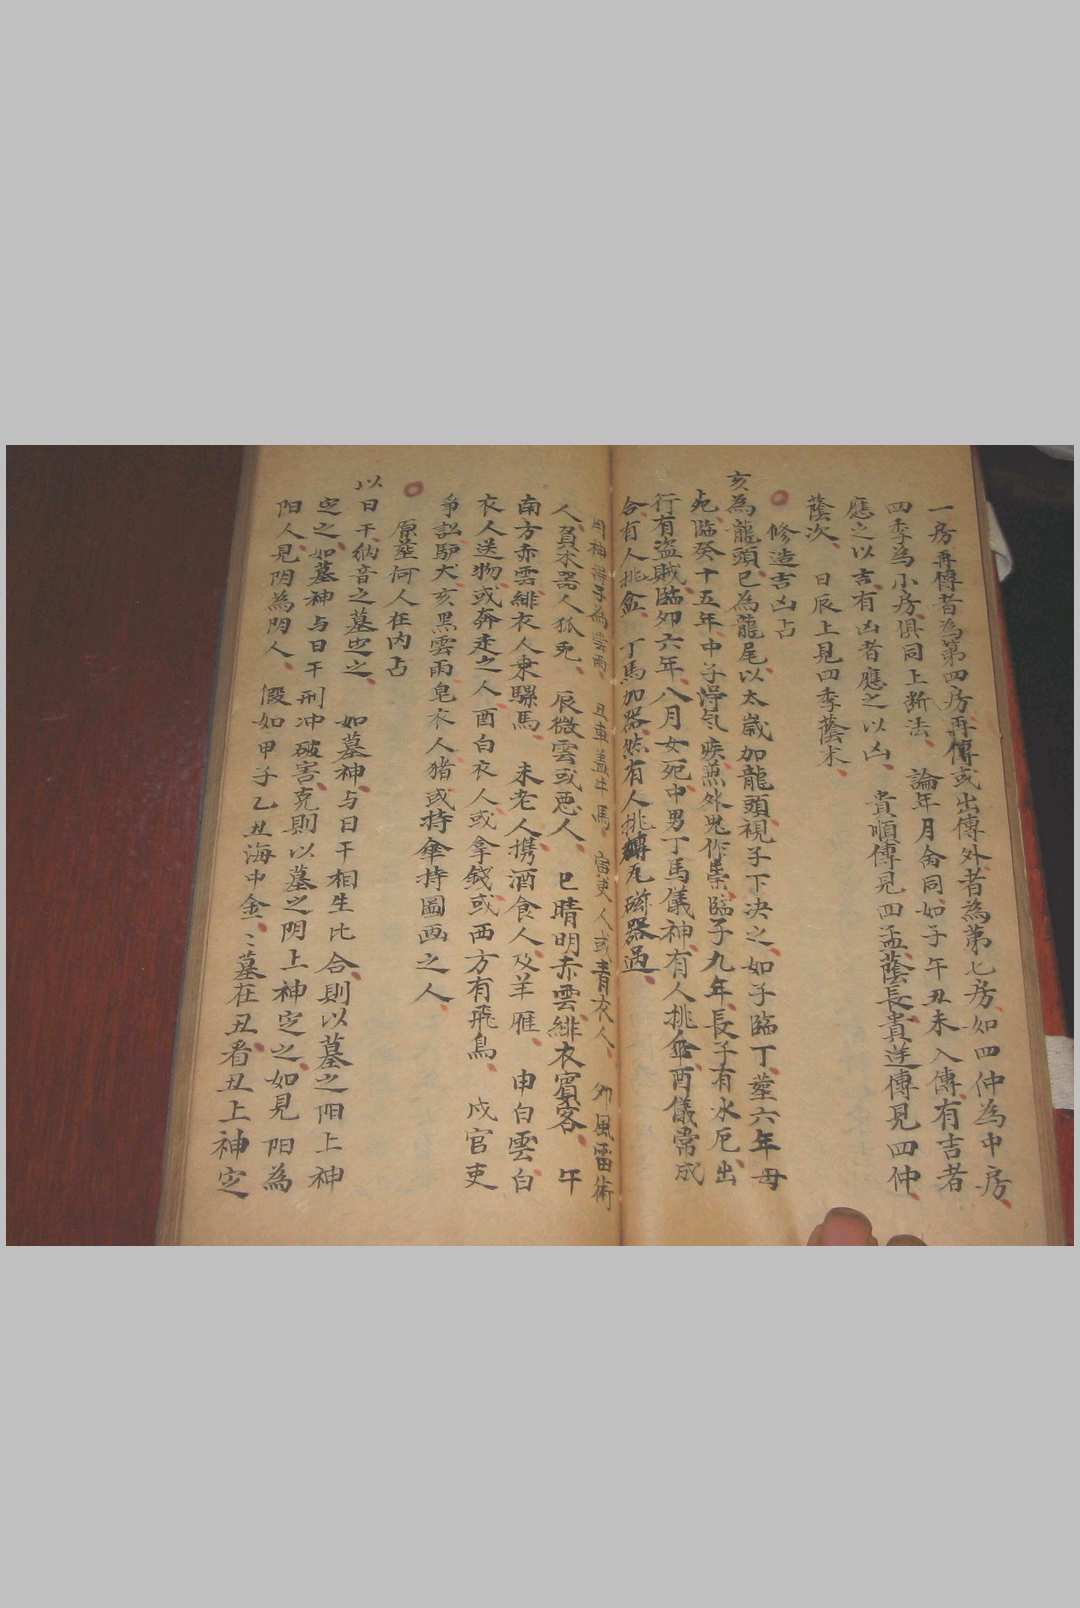 一房再傳者為第四房再傳或出傳外者為第七房如四仲為中房
四季為小房俱同上斷法 論年月命同如子午丑未入傳有吉者
應之以吉有凶者應之以凶 貴順傳見四孟蔭長貴逆傳見四仲
蔭次 日辰上見四季蔭末
修造吉凶占
亥為龍頭巳為龍尾以太歲加龍頭視子下决之如子臨丁塟六年母
死臨癸十五年中子得氣疾燕外鬼作祟臨子九年長子有水厄出
行有盗賊臨夘六年八月女死中男丁馬儀神有人挑傘酉儀常成
合有人挑盆 丁馬加器然有人挑磚瓦磁器過
日神得子為雲雨 丑車盖牛馬 寅吏人或青衣人 夘風雷術
人負木器人狐兎 辰微雲或惡人 巳晴明赤雲緋衣賓客 午
南方赤雲緋衣人乗騾馬 未老人携酒食人及羊雁 申白雲白
衣人送物或奔走之人酉白衣人或拿錢或西方有飛鳥 戌官吏
爭訟驴犬亥黑雲雨皂衣人猪或持傘持圖画之人
原塟何人在内占
以日干納音之墓㝎之 如墓神与日干相生比合則以墓之阳上神
㝎之如墓神与日干刑冲破害克則以墓之阴上神㝎之如見阳為
阳人見阴為阴人 假如甲子乙丑海中金〻墓在丑看丑上神㝎